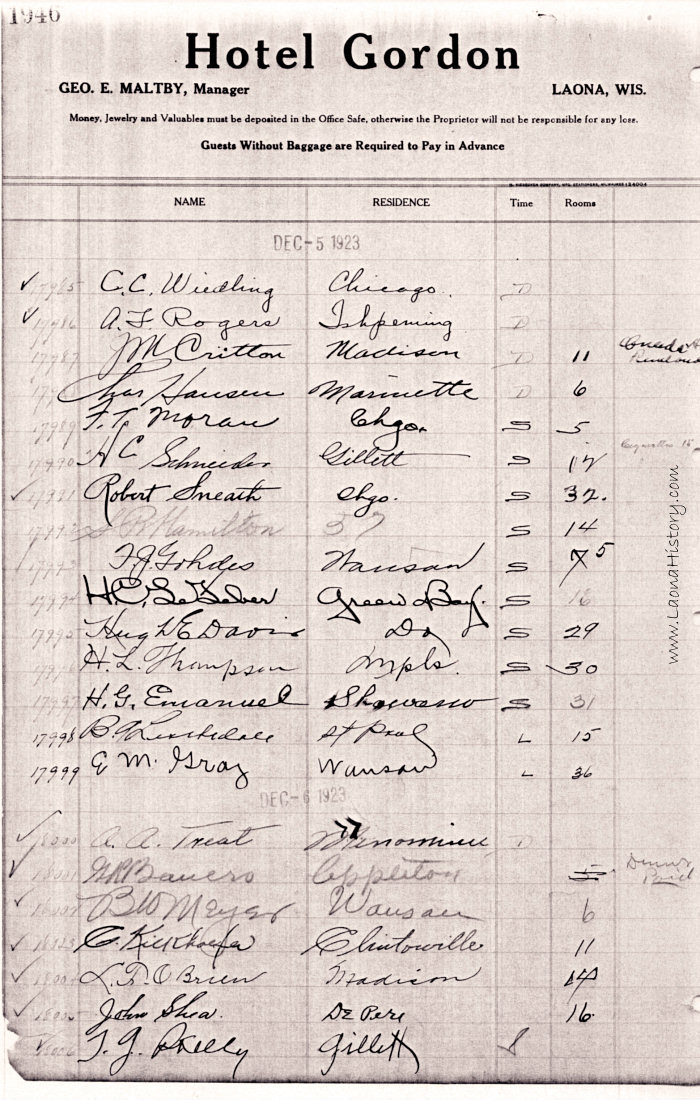 1946
Hotel Gordon
GEO. E. MALTBY, Manager LAONA, WIS.
Money, Jewelry and Valuables must be deposited in the Office Safe, otherwise the Proprietor will not be responsible for any loss.
Guests Without Baggage are Required to Pay in Advance
NAME RESIDENCE Time Rooms
DEC-5 1923
17985 C.C. Wiedling Chicago. D
17986 A.F. Rogers Ishpeming D
17987 J M Critton Madison D 11
Chas Hansen Marinette D 6
17989 F.T. Moran Chgo. S 5
17990 H C Schneider Gillett S 12
17991 Robert Sneath Chgo. S 32.
17992 Hamilton 57 S 14
17993 F.J. Gohdes Wausau S 5
17994 H.C. Green Bay. S 16
17995 Hugh E Davis Do S 29
H. L. Thompson Mpls. S 30
17997 H. G. Emanuel Shawano S 31
17998 B. St Paul L 15
17999 E M. Gray Wausau L 36
DEC-6 1923
18000 A. A. Treat Menominee D
18001 Bauers Appleton 5 Dinner
Paid
18002 B W Meyer Wausau 6
C. Kickhoefer Clintonville 11
18004 L. F. O'Brien Madison 14
18005 John Shea. De Pere 16.
T. J. Gillett
www.LaonaHistory.com